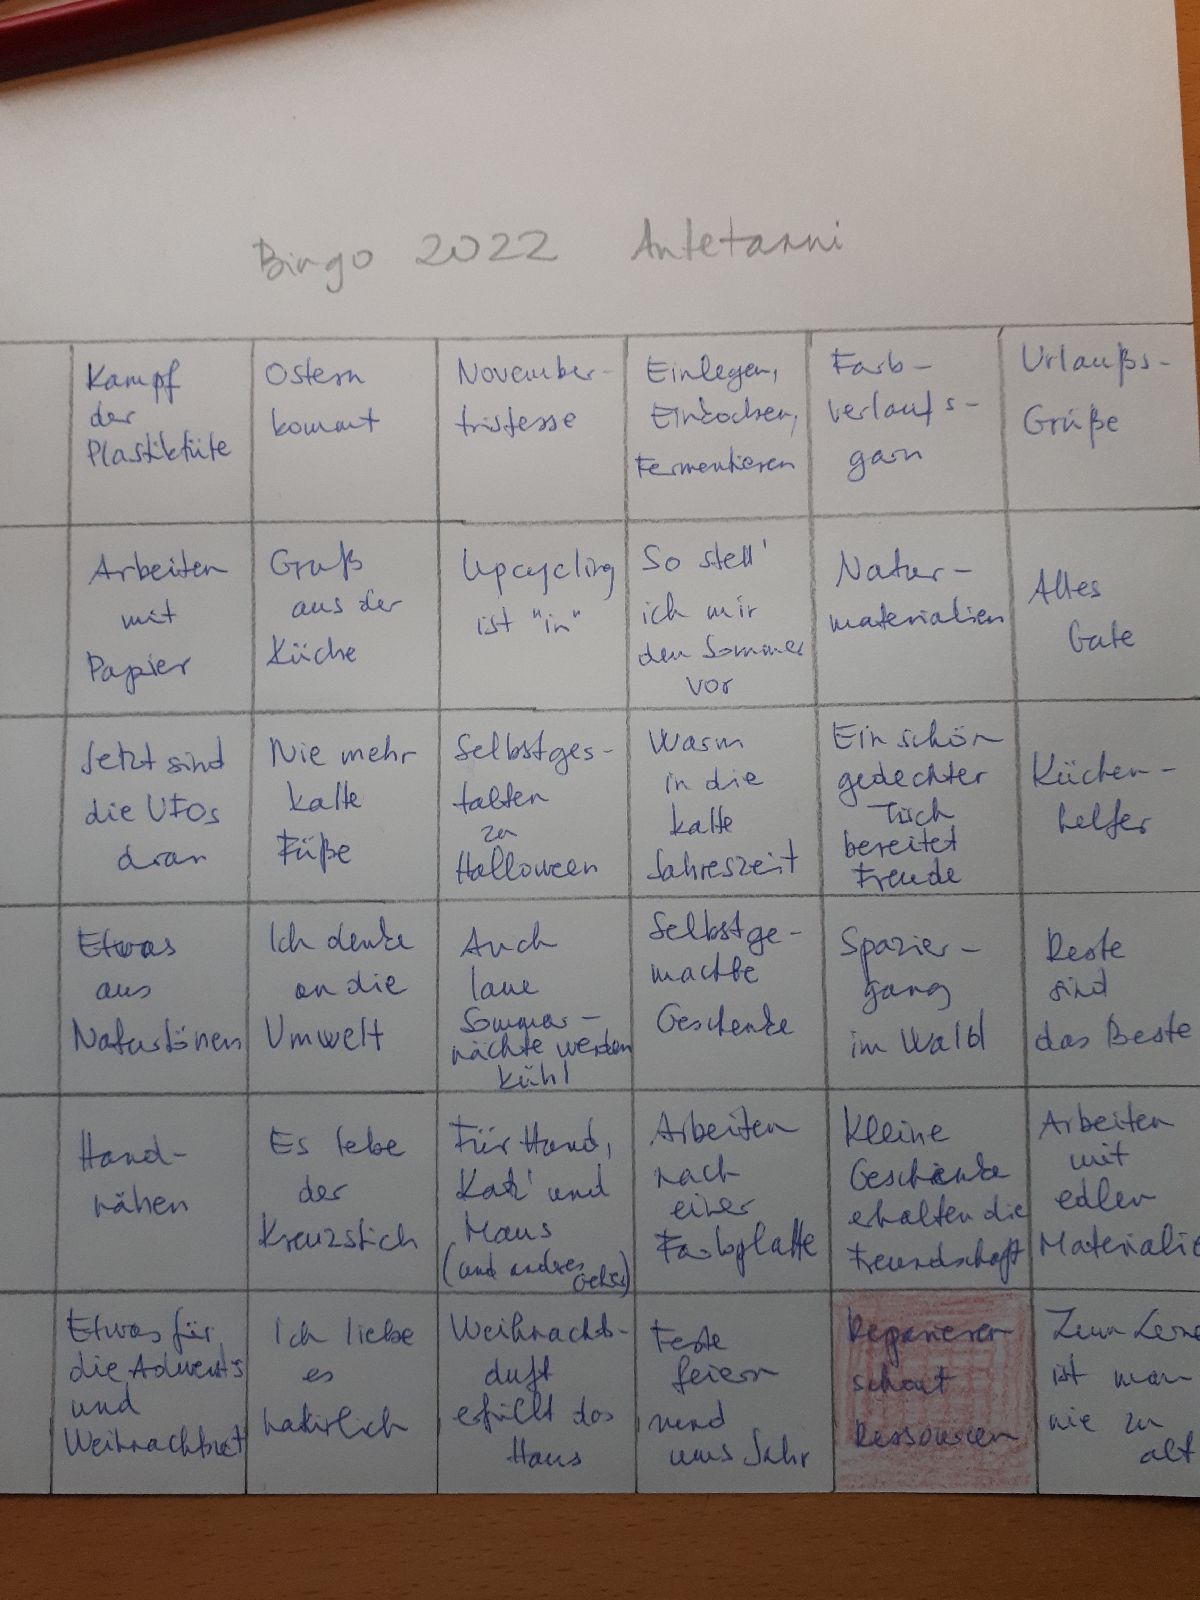 Bingo 2022 Antetanni
Kampf
der
Plastiktüte
Ostern
kommt
November-
tristesse
Einlegen,
Einkochen,
Fermentieren
Farb-
verlaufs-
garn
Urlaubs-
Grüße
Arbeiten
mit
Papier
Gruß
aus der
Küche
Upcycling
ist "in"
So stell'
ich mir
den Sommer
vor
Natur-
materialien
Alles
Gute
Jetzt sind
die UFOs
dran
Nie mehr
kalte
Füße
Selbstges-
talten
zu
Halloween
Warm
in die
kalte
Jahreszeit
Ein schön
gedeckter
Tisch
bereitet
Freude
Küchen-
helfer
Etwas
aus
Naturtönen
Ich denke
an die
Umwelt
Auch
laue
Sommer-
nächte werden
kühl
Selbstge-
machte
Geschenke
Spazier-
gang
im Wald
Reste
sind
das Beste
Hand-
nähen
Es lebe
der
Kreuzstich
Für Hund,
Katz' und
Maus
(und andres
Arbeiten
nach
einer
Farbplatte
Kleine
Geschenke
erhalten die
Freundschaft
Arbeiten
mit
edlen
Materialie
Etwas für
die Advents
und
Weihnachtszeit
Ich liebe
es
natürlich
Weihnachts-
duft
erfüllt das
Haus
Feste
feiern
rund
ums Jahr
Reparieren
schont
Ressourcen
Zum Lerne
ist man
nie zu
alt